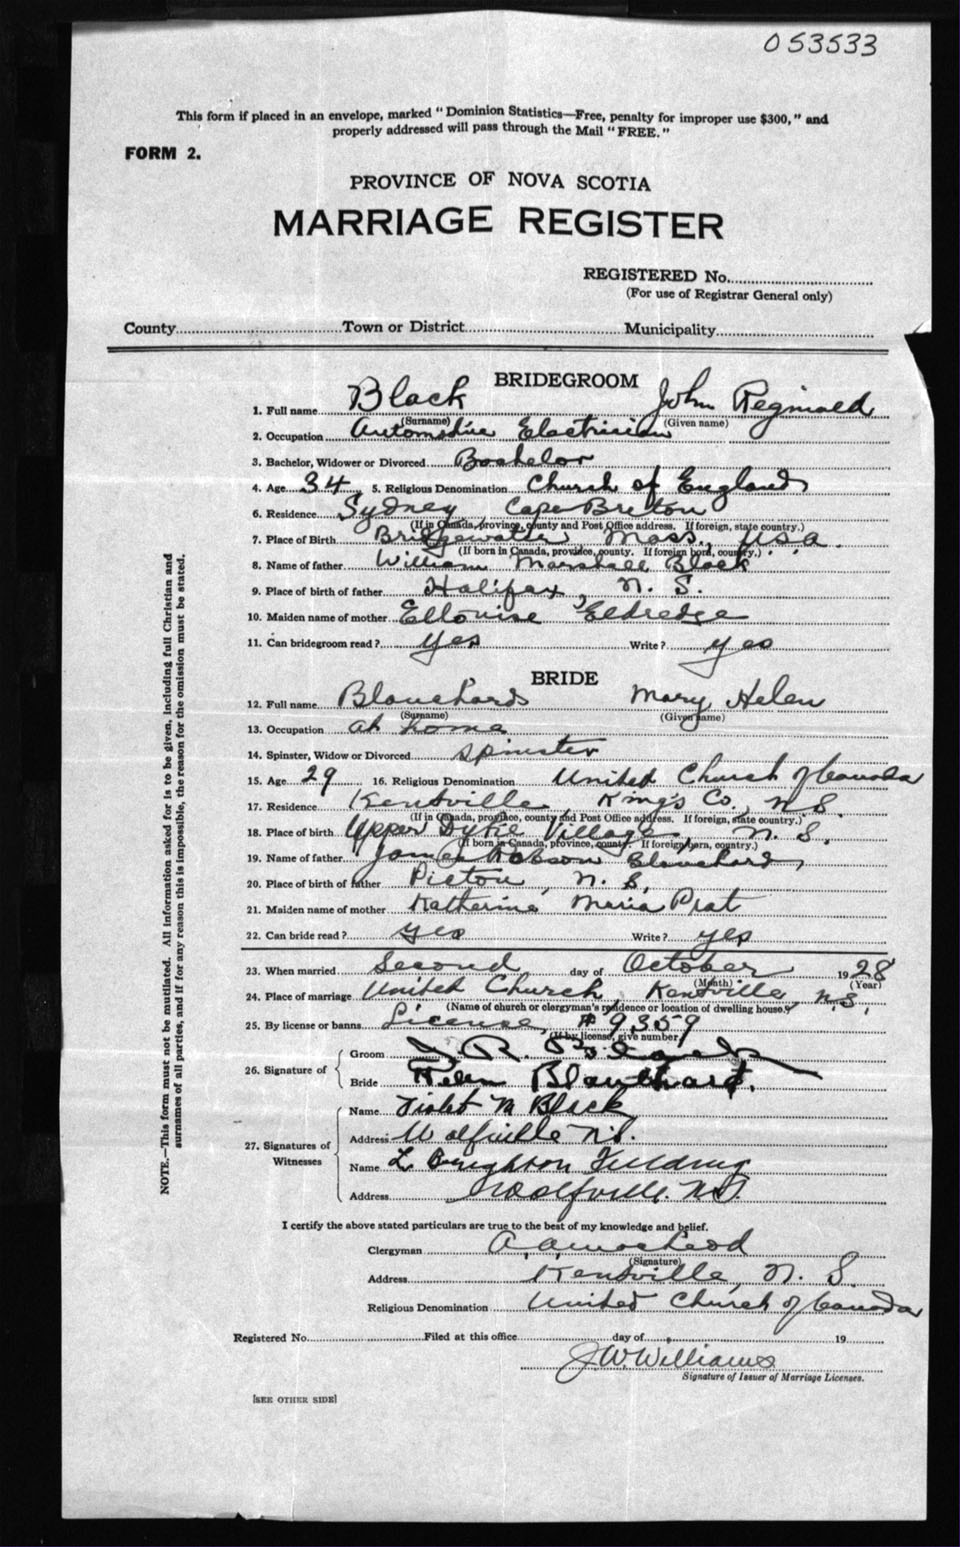 053533
This form if placed in an envelope, marked "Dominion Statistics—Free, penalty for improper use $300," and
properly addressed will pass through the Mail "FREE."
FORM 2.
PROVINCE OF NOVA SCOTIA
MARRIAGE REGISTER
REGISTERED No.
(For use of Registrar General only)
County Town or District Municipality
BRIDEGROOM
1. Full name Black John Reginald
(Surname) (Given name)
2. Occupation Automotive Electrician
3. Bachelor, Widower or Divorced Bachelor
4. Age 34 5. Religious Denomination Church of England
6. Residence Sydney Cape Breton
(If in Canada, province, county and Post Office address. If foreign, state country.)
7. Place of Birth Bridgewater Mass., USA.
(If born in Canada, province, county. If foreign born, country.)
8. Name of father William Marshall Black
9. Place of birth of father Halifax, N. S.
10. Maiden name of mother Ellouise Eldredge
11. Can bridegroom read? yes Write? yes
BRIDE
12. Full name Blanchard Mary Helen
(Surname) (Given name)
13. Occupation at home
14. Spinster, Widow or Divorced spinster
15. Age 29 16. Religious Denomination United Church of Canada
17. Residence Kentville, King's Co., N.S.
(If in Canada, province, county and Post Office address. If foreign, state country.)
18. Place of birth Upper Dyke Village, N. S.
(If born in Canada, province, county. If foreign born, country.)
19. Name of father James Robson Blanchard
20. Place of birth of father Pictou, N. S.
21. Maiden name of mother Katherine Maria Prat
22. Can bride read? yes Write? yes
23. When married Second day of October 1928
(Month) (Year)
24. Place of marriage United Church, Kentville, N.S.
(Name of church or clergyman's residence or location of dwelling house.)
25. By license or banns License, #9359
(If by license, give number)
26. Signature of
Groom J. R. Black
Bride Helen Blanchard.
27. Signatures of Witnesses
Name Violet M Black
Address Wolfville N.S.
Name L Brighton Fielding
Address Wolfville. N.S.
I certify the above stated particulars are true to the best of my knowledge and belief.
Clergyman A. A. MacLeod
(Signature)
Address Kentville, N. S.
Religious Denomination United Church of Canada
Registered No. Filed at this office day of 19
J W Williams
Signature of Issuer of Marriage Licenses.
[SEE OTHER SIDE]
NOTE.—This form must not be mutilated. All information asked for is to be given, including full Christian and
surnames of all parties, and if for any reason this is impossible, the reason for the omission must be stated.